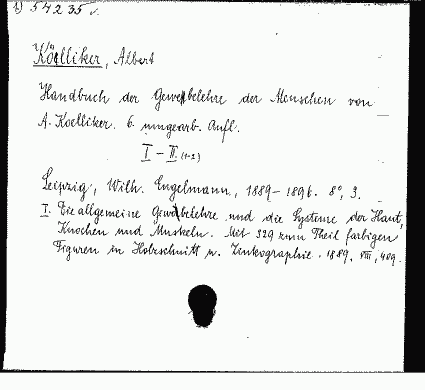 1) 54235.
Kölliker, Albert
Handbuch der Gewebelehre der Menschen von
A. Koelliker. 6. umgearb. Aufl.
I – II (1-2)
Leipzig, Wilh. Engelmann, 1889–1896. 8°, 3.
I. Die allgemeine Gewebelehre und die Systeme der Haut,
Knochen und Muskeln. Mit 329 zum Theil farbigen
Figuren in Holzschnitt u. Zinkographie. 1889. VIII, 409.